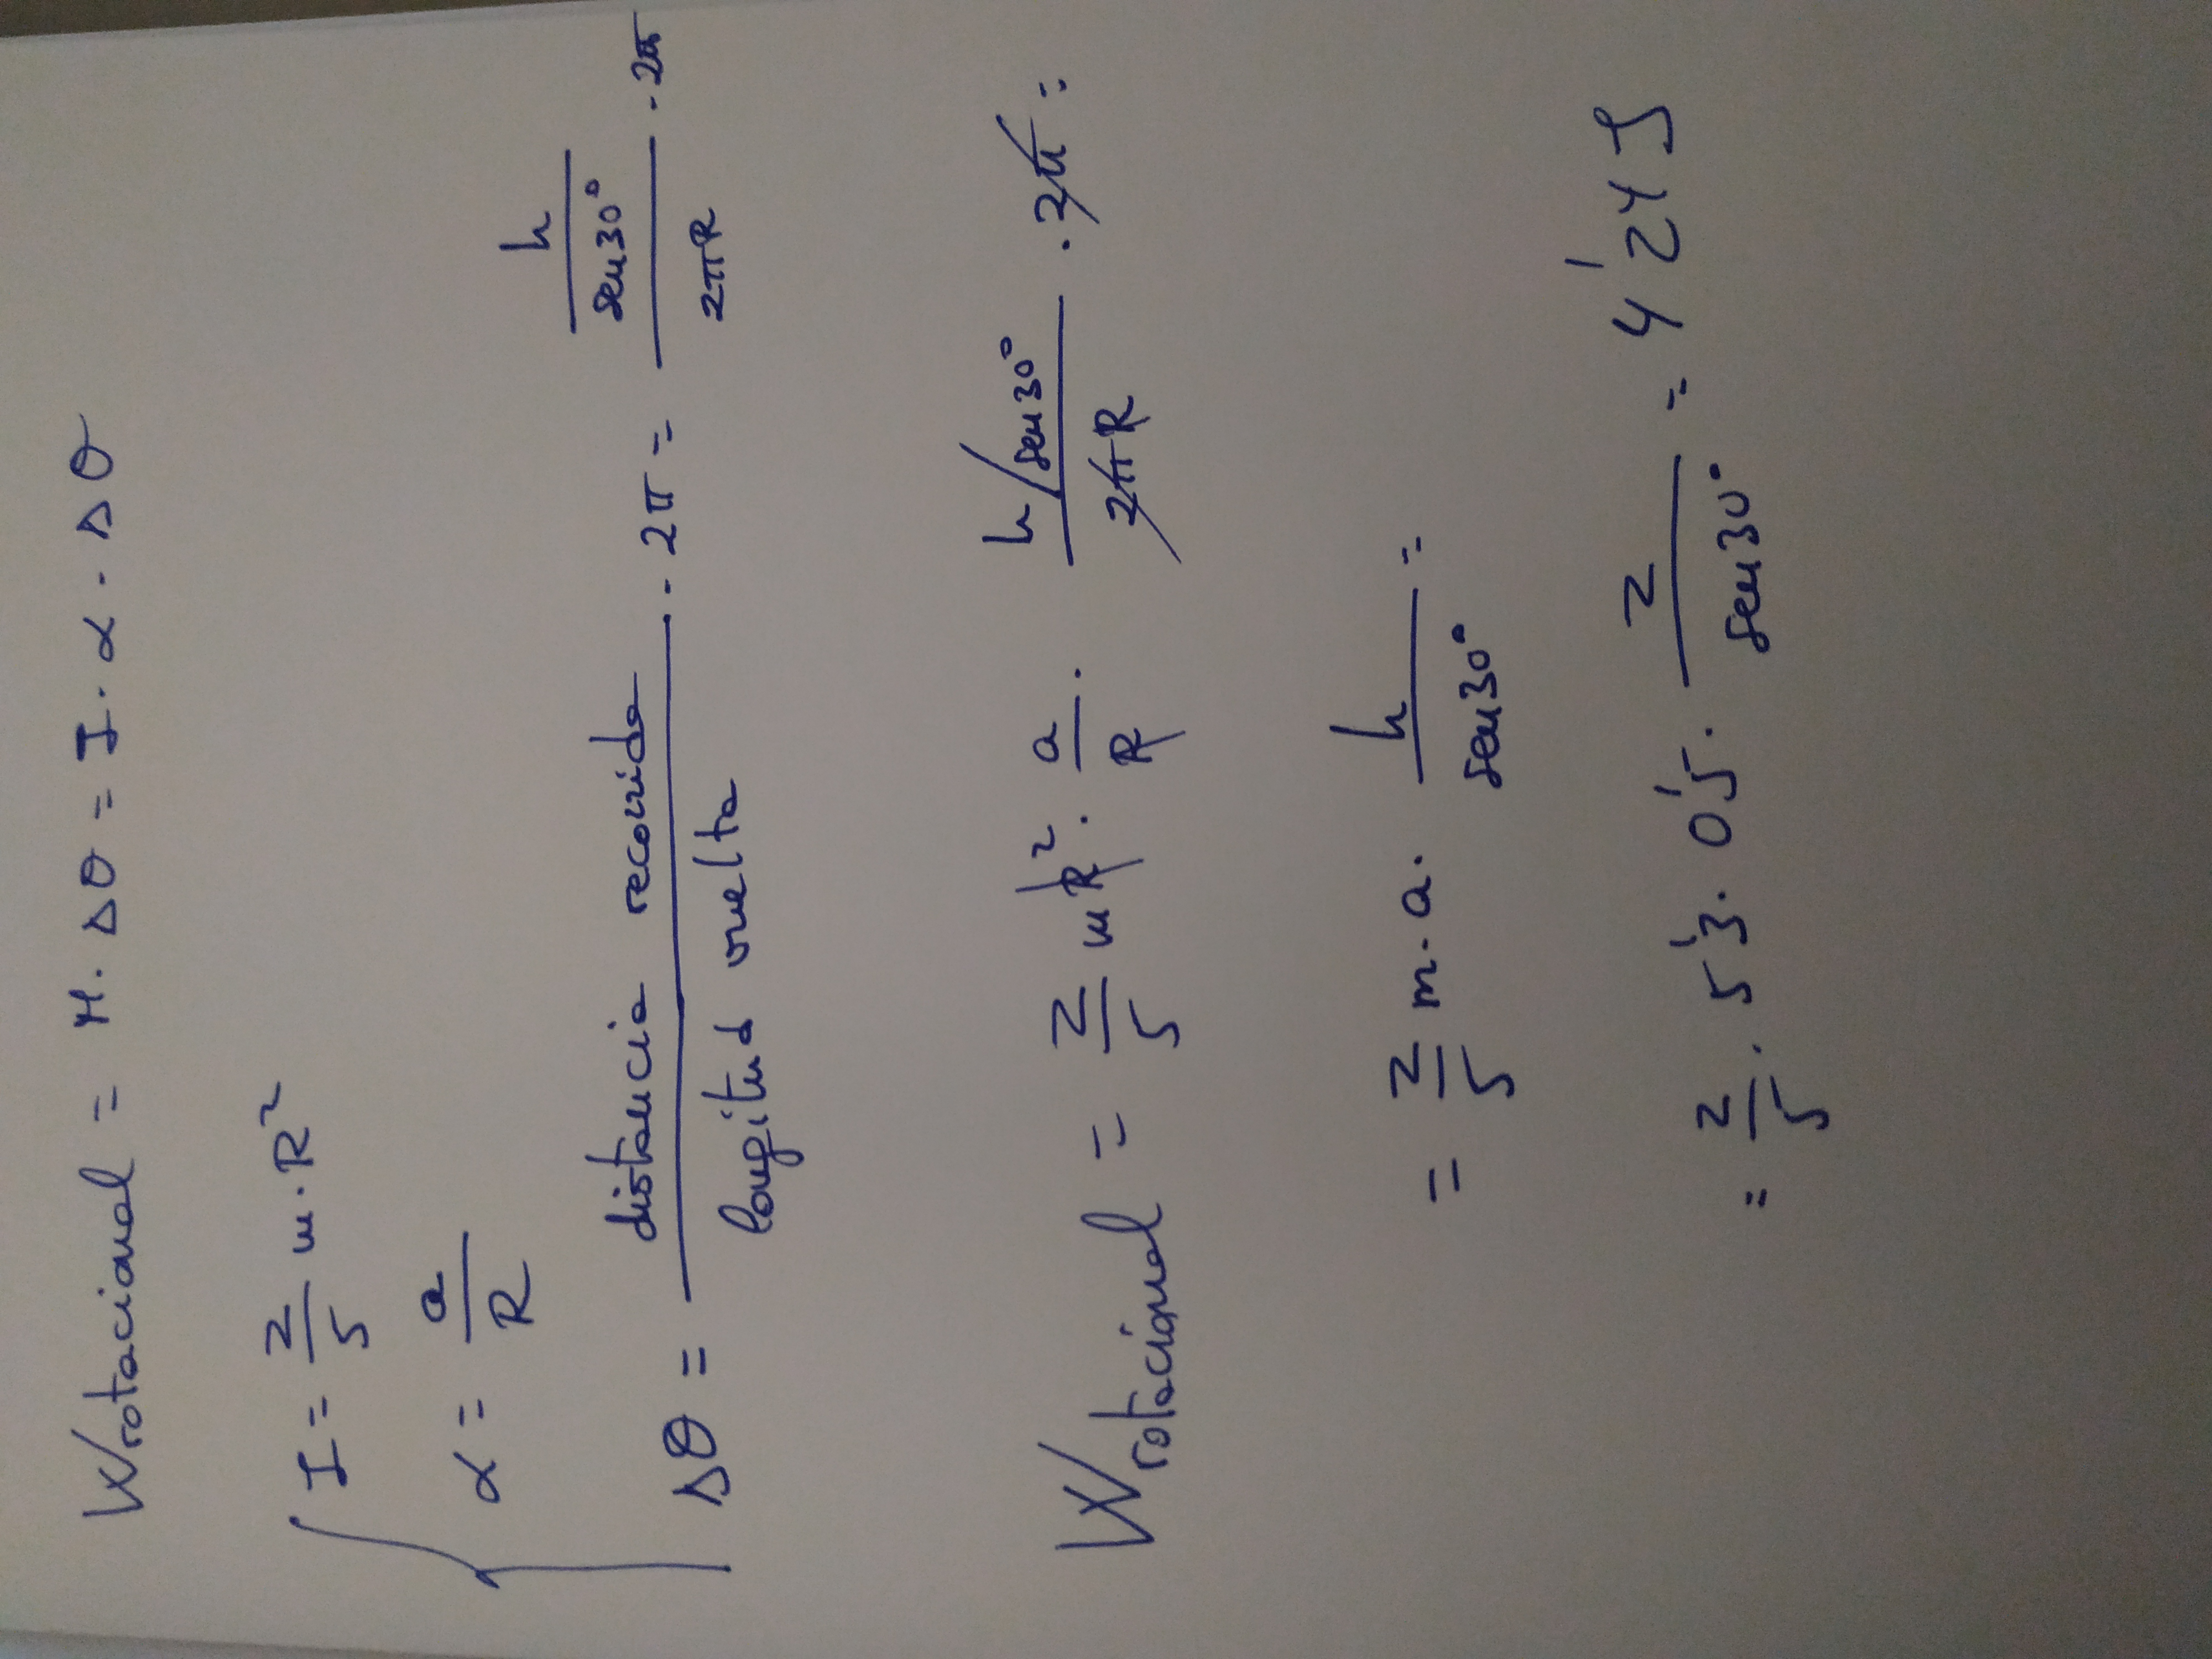 Wrotacional = M · Δθ = I · α · Δθ
I = 2/5 m · R²
α = a/R
Δθ = distancia recorrida / longitud vuelta · 2π = (h / sen30°) / 2πR · 2π
Wrotacional = 2/5 mR² · a/R · (h/sen30°) / 2πR · 2π =
= 2/5 m · a · h / sen30° =
= 2/5 · 5'3 · 0'5 · 2 / sen30° = 4'24J